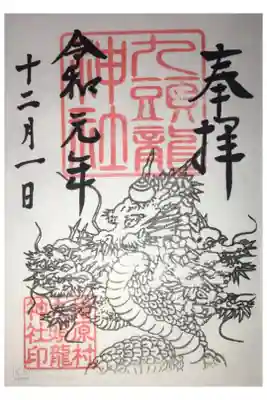 奉拝
九頭龍
神社
令和元年
十二月一日
檜原村
九頭龍
神社印